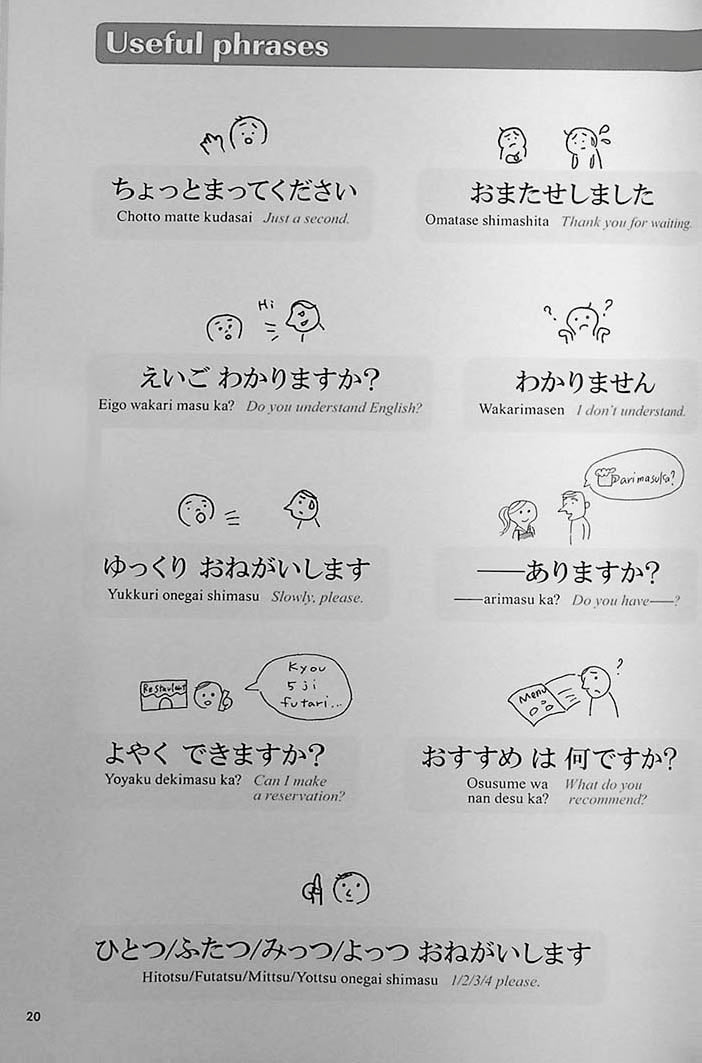 Useful phrases
ちょっとまってください
Chotto matte kudasai Just a second.
おまたせしました
Omatase shimashita Thank you for waiting.
Hi
えいご わかりますか?
Eigo wakari masu ka? Do you understand English?
? ?
わかりません
Wakarimasen I don't understand.
ゆっくり おねがいします
Yukkuri onegai shimasu Slowly, please.
arimasuka?
——ありますか?
——arimasu ka? Do you have——?
Restaurant
Kyou
5 ji
futari...
よやく できますか?
Yoyaku dekimasu ka? Can I make
a reservation?
Menu
?
おすすめ は 何ですか?
Osusume wa What do you
nan desu ka? recommend?
ひとつ/ふたつ/みっつ/よっつ おねがいします
Hitotsu/Futatsu/Mittsu/Yottsu onegai shimasu 1/2/3/4 please.
20